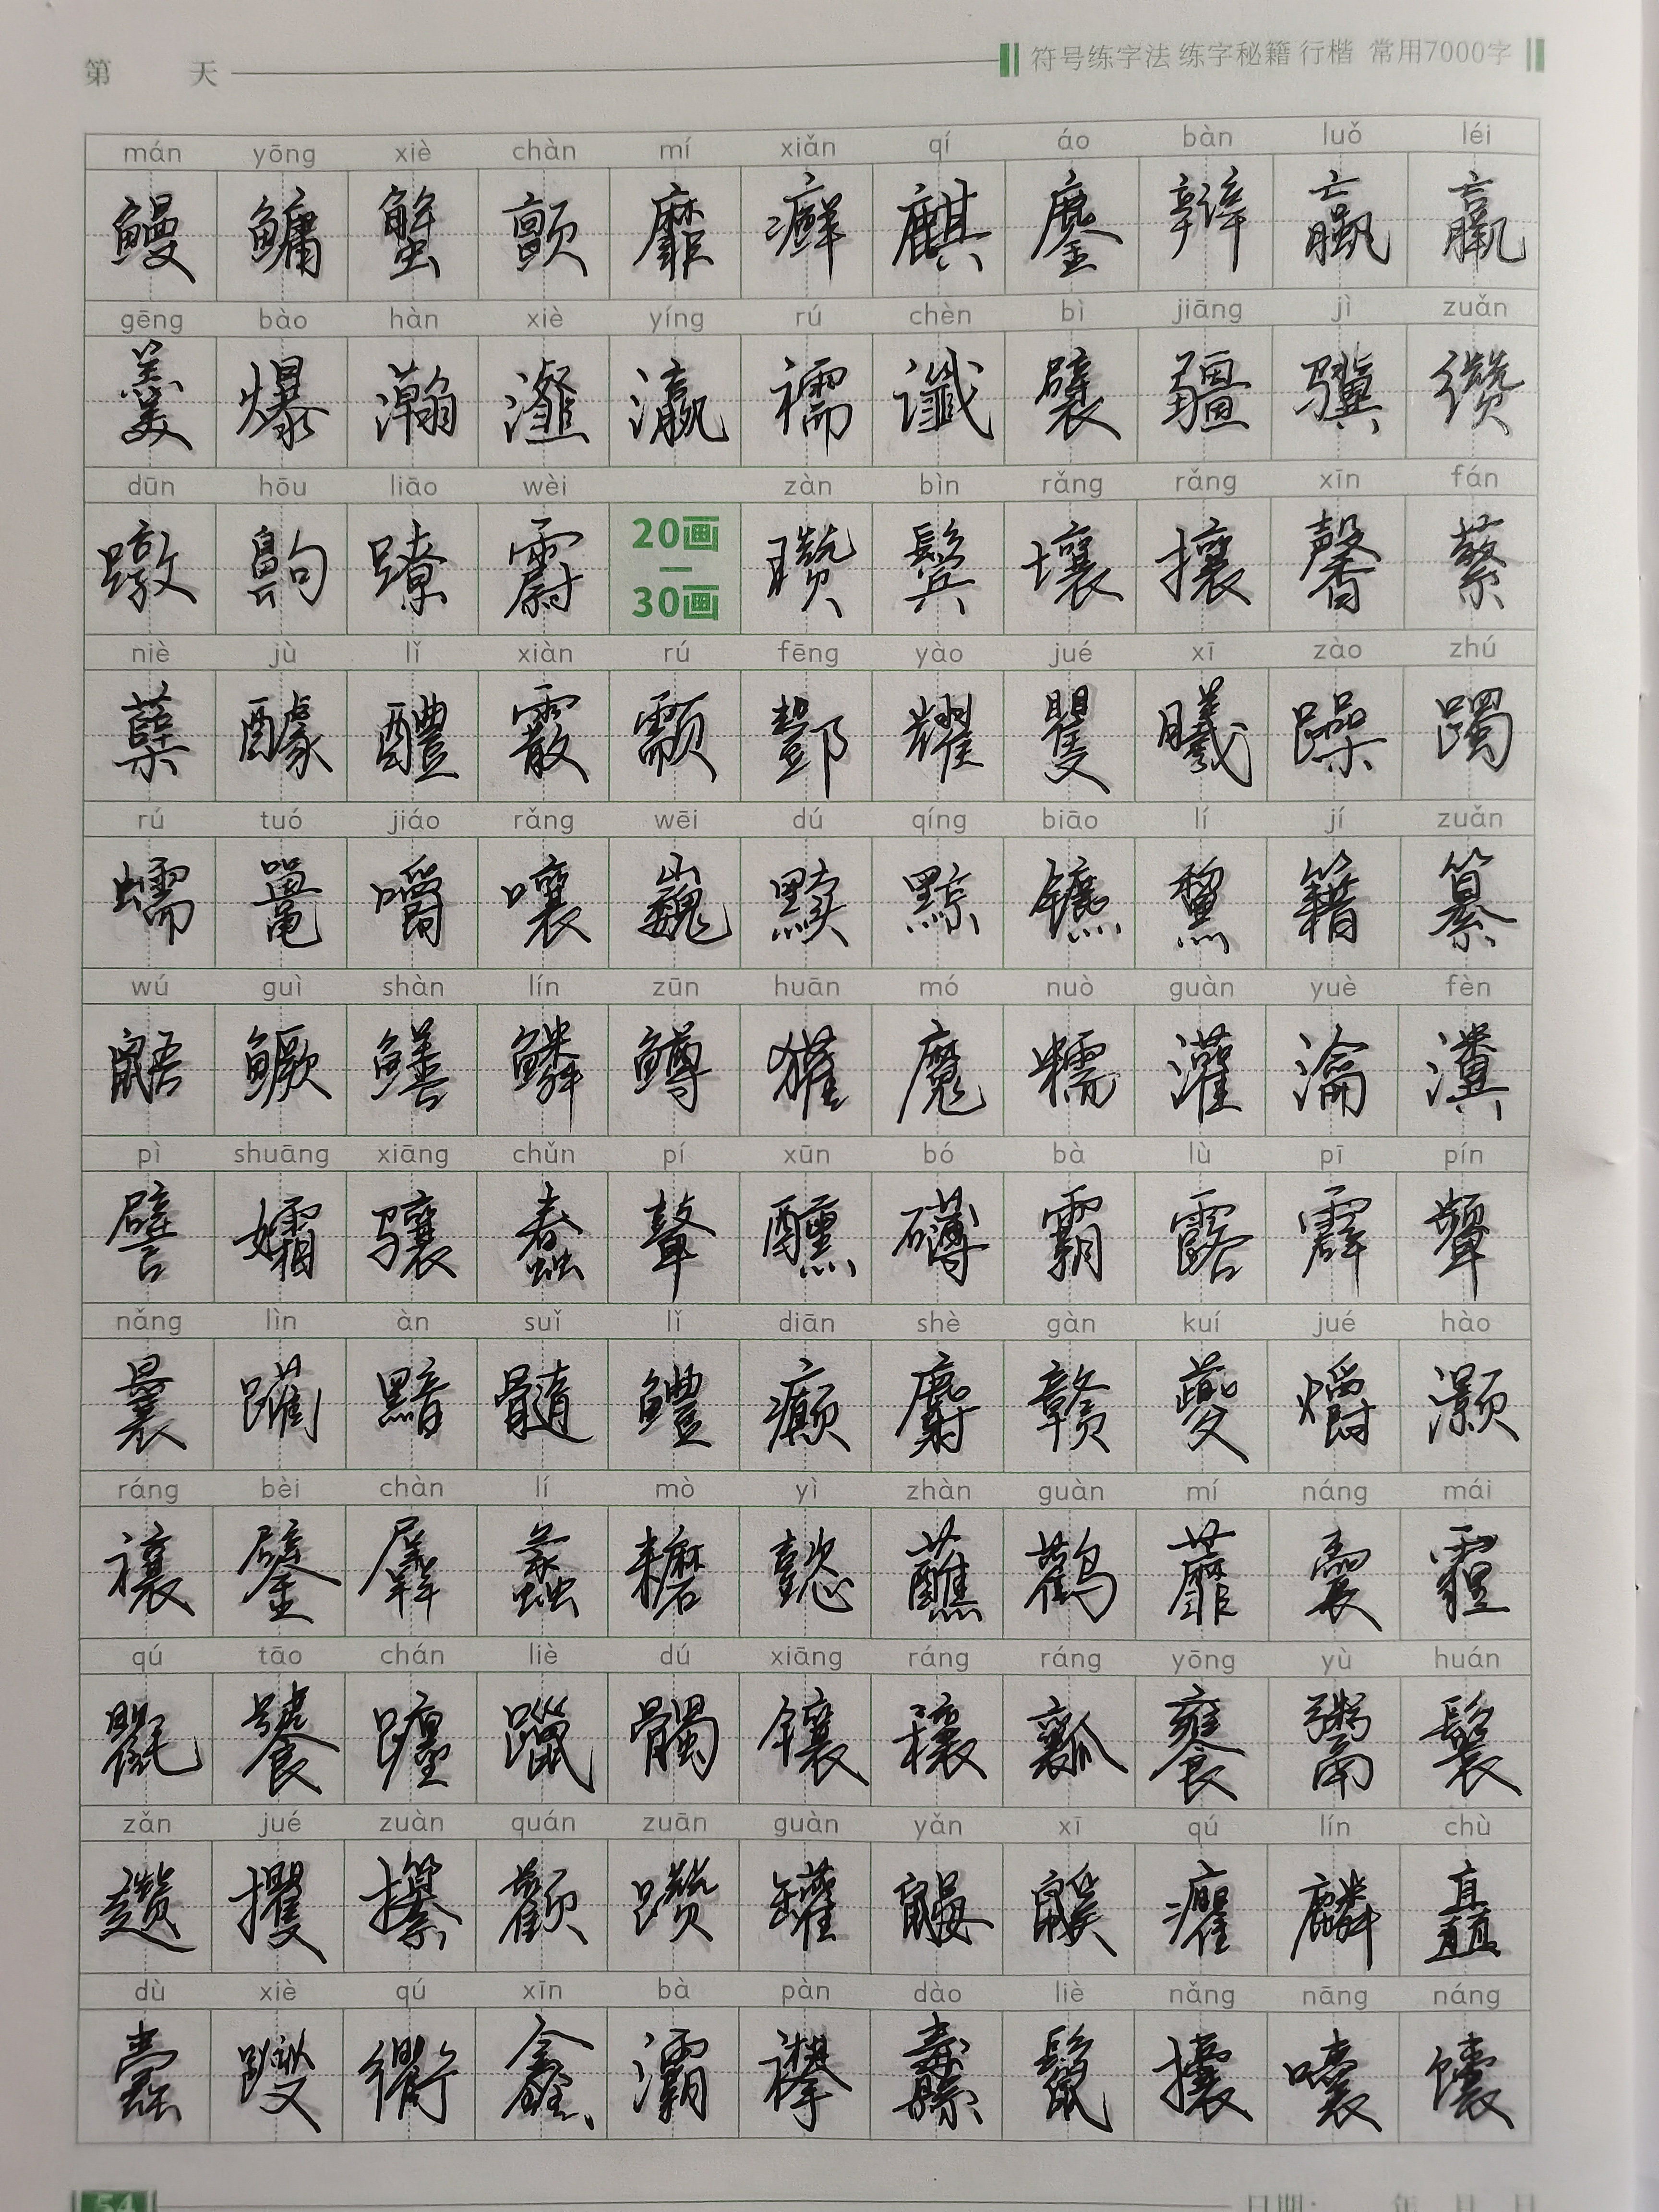 第 天
符号练字法 练字秘籍 行楷 常用7000字
mán yōng xiè chàn mí xiǎn qí áo bàn luǒ léi
鳗 鳙 蟹 颤 靡 癣 麒 鏖 瓣 蠃 羸
gēng bào hàn xiè yíng rú chèn bì jiāng jì zuǎn
羹 爆 瀚 瀣 瀛 襦 谶 襞 疆 骥 缵
dūn hōu liāo wèi zàn bìn rǎng rǎng xīn fán
蹾 齁 蹽 霨 20画—30画 瓒 鬓 壤 攘 馨 蘩
niè jù lǐ xiàn rú fēng yào jué xī zào zhú
蘖 醵 醴 霰 颥 酆 耀 矍 曦 躁 躅
rú tuó jiáo rǎng wēi dú qíng biāo lí jí zuǎn
蠕 鼍 嚼 嚷 巍 黩 黥 镳 黧 籍 纂
wú guì shàn lín zūn huān mó nuò guàn yuè fèn
鼯 鳜 鳝 鳞 鳟 獾 魔 糯 灌 瀹 瀵
pì shuāng xiāng chǔn pí xūn bó bà lù pī pín
譬 孀 骧 蠢 鼙 醺 礴 霸 露 霹 颦
nǎng lìn àn suǐ lǐ diān shè gàn kuí jué hào
曩 躏 黯 髓 鳢 癫 麝 赣 夔 爝 灏
ráng bèi chàn lí mò yì zhàn guàn mí náng mái
禳 鐾 羼 蠡 耱 懿 蘸 鹳 蘼 囊 霾
qú tāo chán liè dú xiāng ráng ráng yōng yù huán
氍 饕 躔 躐 髑 镶 穰 瓤 饔 鬻 鬟
zǎn jué zuàn quán zuān guàn yǎn xī qú lín chù
趱 攫 攥 颧 躜 罐 鼹 鼷 癯 麟 矗
dù xiè qú xīn bà pàn dào liè nǎng nāng náng
蠹 躞 衢 鑫 灞 襻 纛 鬣 攮 囔 馕
54 日期: 年 月 日